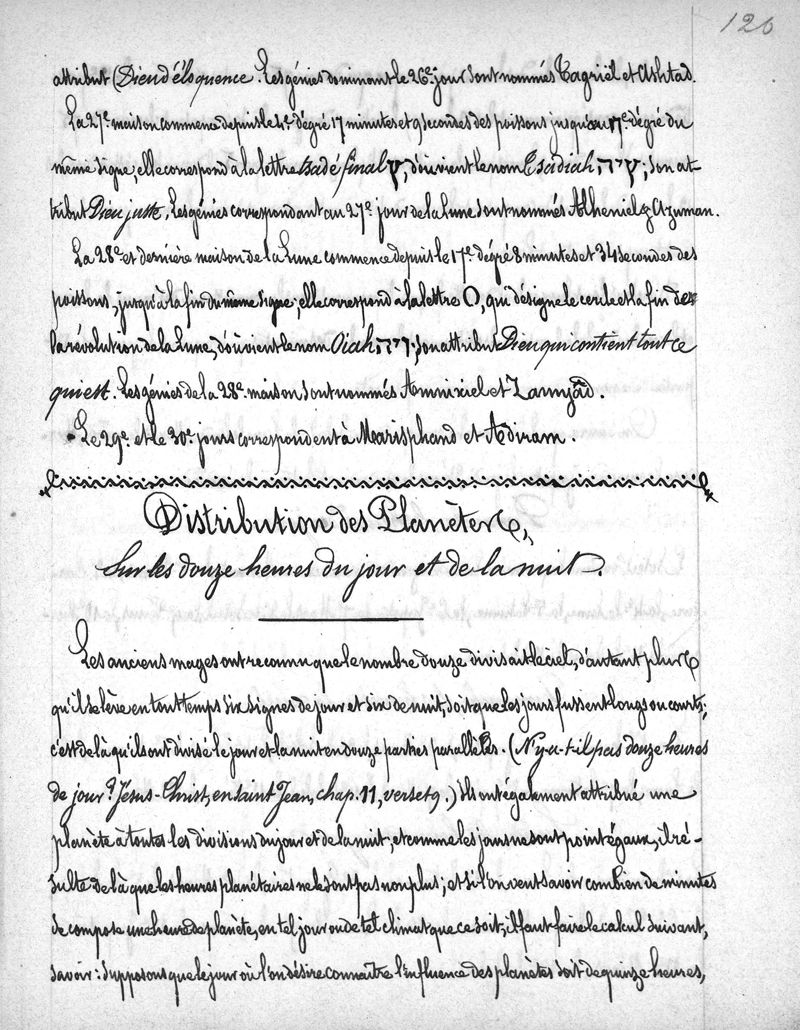 126
attribut (Dieu d'éloquence. Les génies dominant le 26e jour sont nommés Tagriël et Ashtad.
La 27e maison commence depuis le 4e dégré 17 minutes et 9 secondes des poissons jusqu'au 17e dégré du
même signe; elle correspond à la lettre tsadé final ץ, d'où vient le nom Tsadiah ץיה; son at-
tribut Dieu juste, Les génies correspondant au 27e jour de la lune sont nommés Alheniel & Azuman.
La 28e et dernière maison de la Lune commence depuis le 17e dégré 8 minutes et 34 secondes des
poissons, jusqu'à la fin du même signe; elle correspond à la lettre O, qui désigne le cercle et la fin de
la révolution de la Lune, d'où vient le nom Oiah ויה; son attribut Dieu qui contient tout ce
qui est. Les génies de la 28e maison sont nommés Amnixiel et Zamyâd.
Le 29e et le 30e jours correspondent à Marisphand et Adiram.
Distribution des Planètes,
Sur les douze heures du jour et de la nuit.
Les anciens mages ont reconnu que le nombre douze divisait le ciel, d'autant plus
qu'il se lève en tout temps six signes de jour et six de nuit, soit que les jours fussent longs ou courts;
c'est de là qu'ils ont divisé le jour et la nuit en douze parties parallèles. (N'y a-t-il pas douze heures
de jour? Jésus-Christ, en saint Jean, chap. 11, verset 9.) Ils ont également attribué une
planète à toutes les divisions du jour et de la nuit; et comme les jours ne sont point égaux, il ré-
sulte de là que les heures planétaires ne le sont pas non plus; et si l'on veut savoir combien de minutes
se compose une heure de planète, en tel jour ou de tel climat que ce soit, il faut faire le calcul suivant,
savoir: Supposons que le jour où l'on désire connaître l'influence des planètes soit de quinze heures,